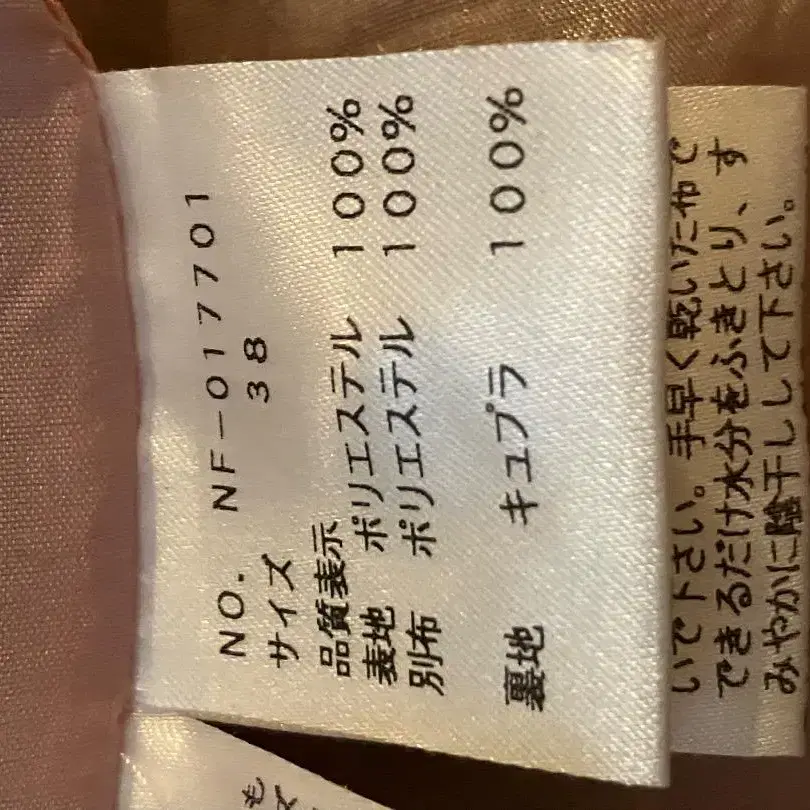 NO. NF-017701
サイズ 38
品質表示
表地 ポリエステル 100%
別布 ポリエステル 100%
裏地 キュプラ 100%
いで下さい。手早く乾いた布で
できるだけ水分をふきとり、す
みやかに陰干しして下さい。
も